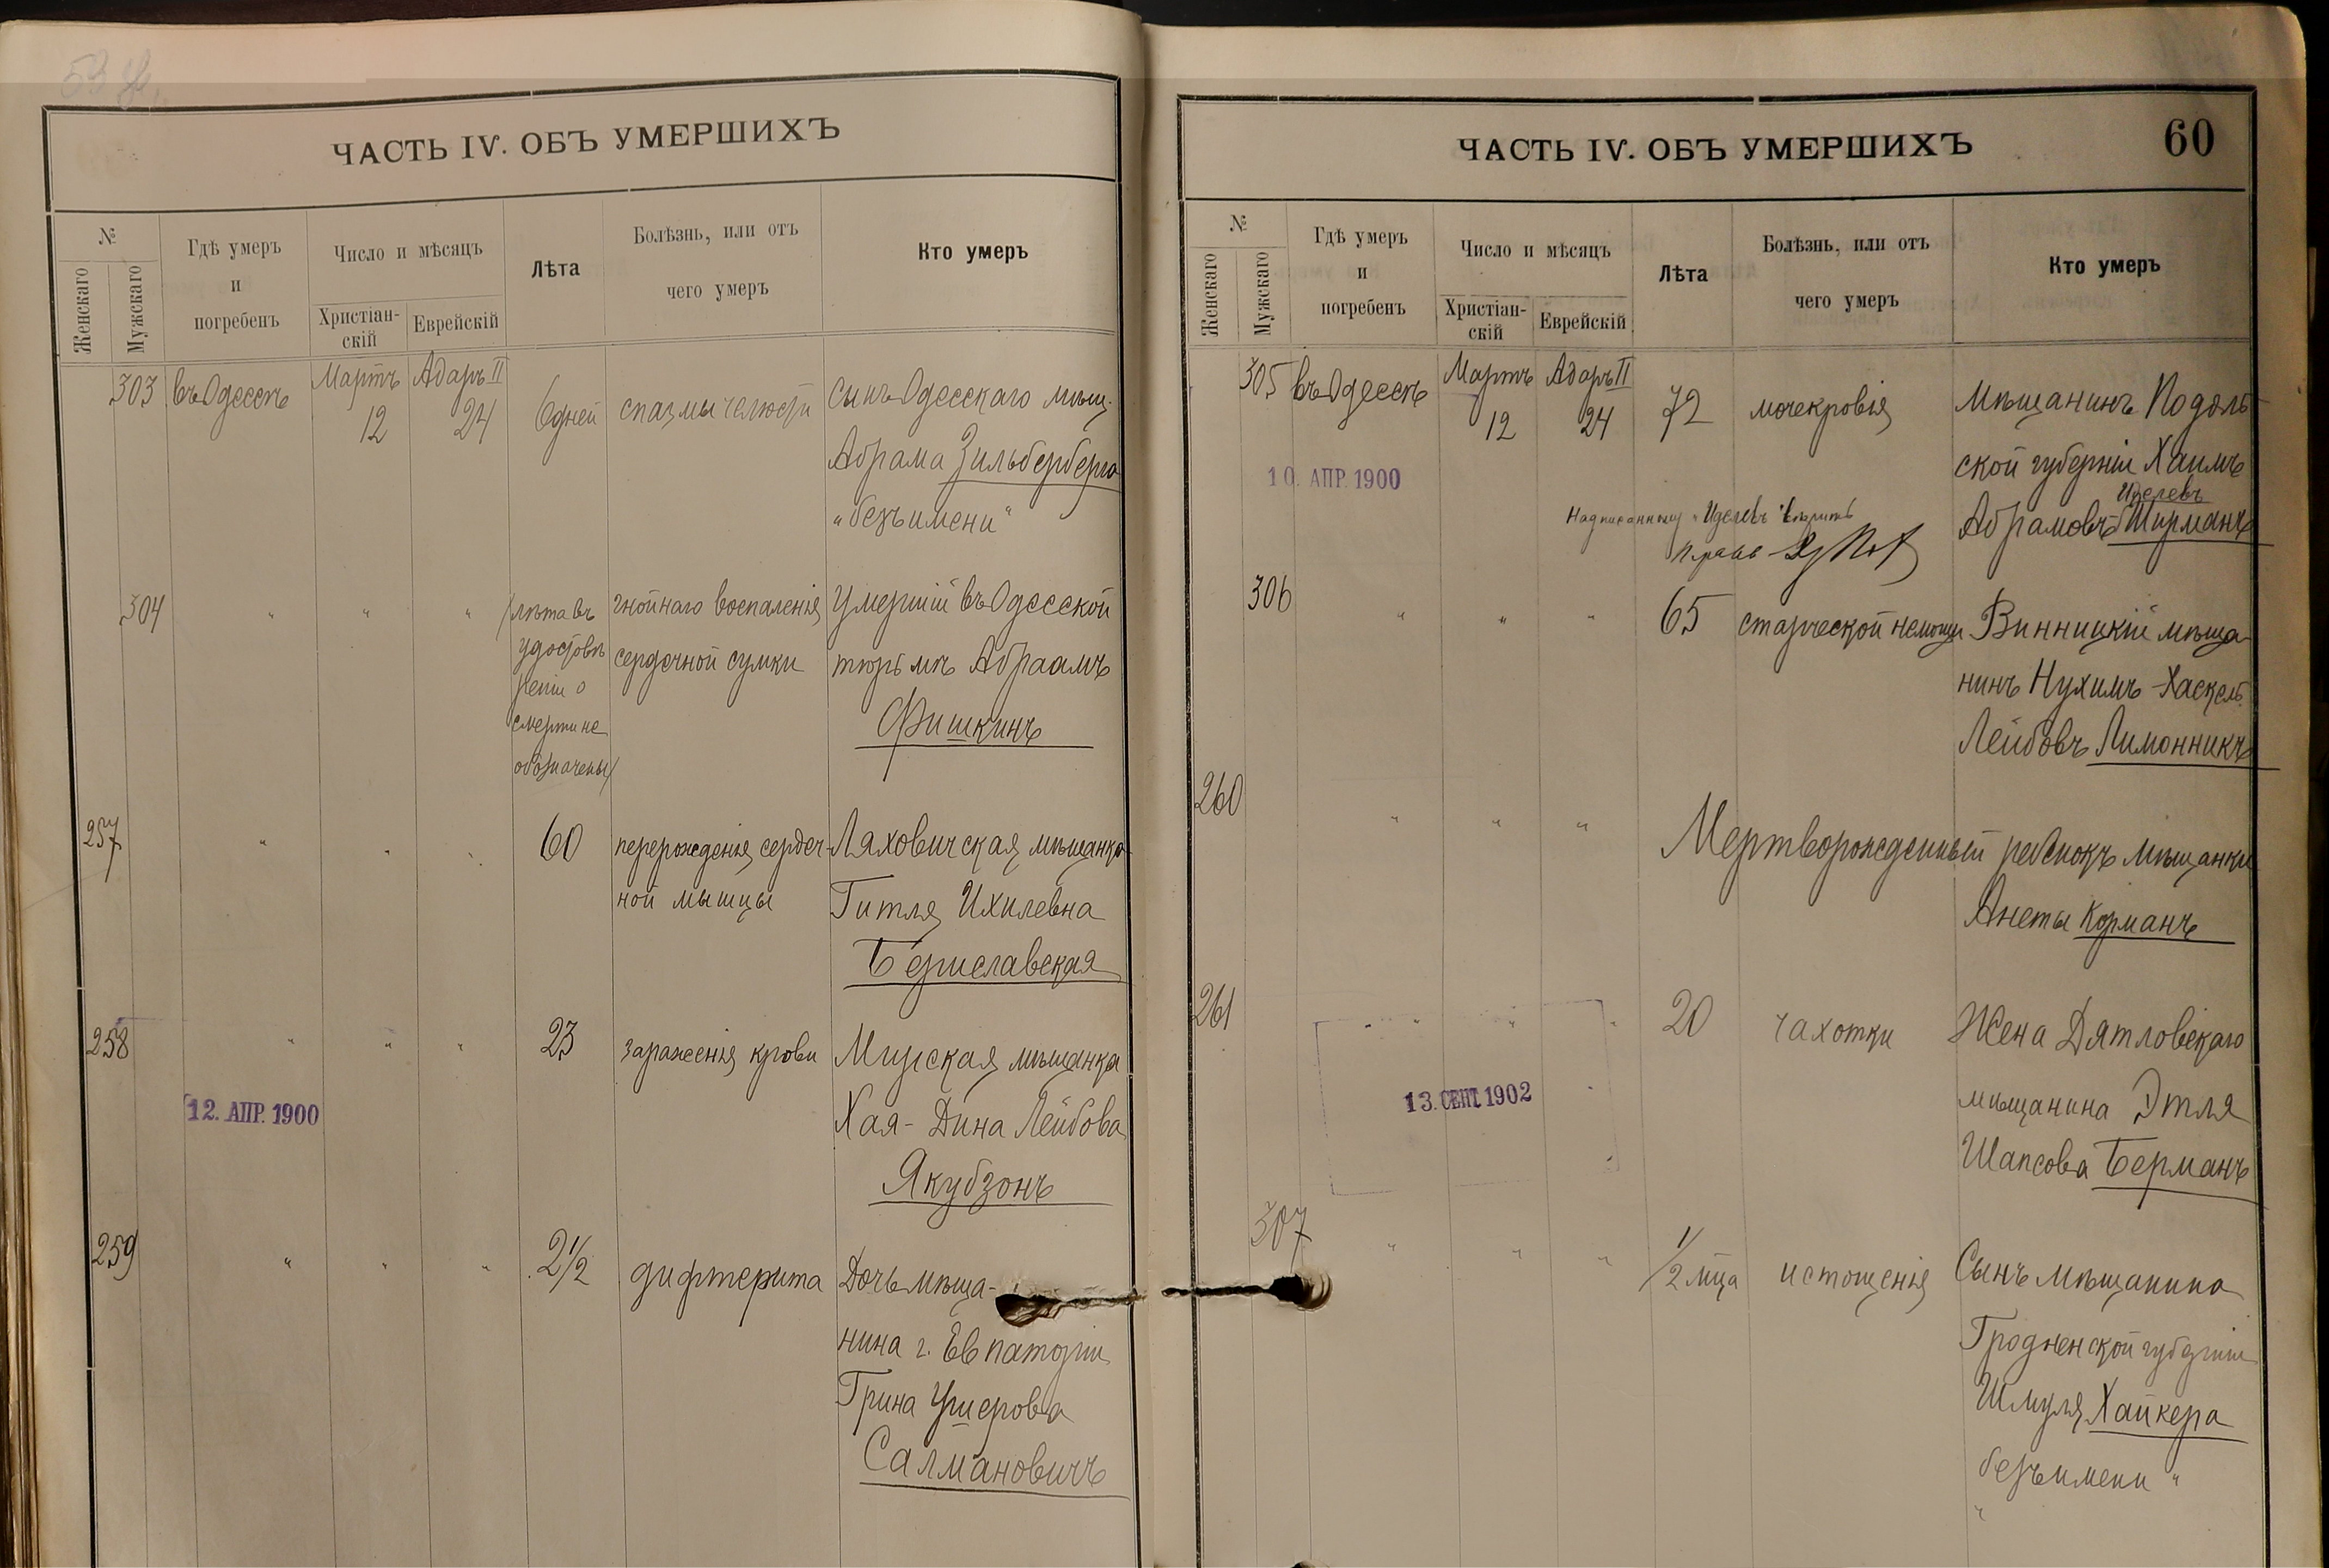 ЧАСТЬ IV. ОБЪ УМЕРШИХЪ
№
Женскаго
Мужскаго
Гдѣ умеръ
и
погребенъ
Число и мѣсяцъ
Христіан-
скій
Еврейскій
Лѣта
Болѣзнь, или отъ
чего умеръ
Кто умеръ
303 въ Одессѣ Мартъ Адаръ II 6 дней спазмы челюсти сынъ Одесскаго мѣщ.
12 24
Абрама Зильберберга
"безъ имени"
304 " " " (лѣта въ гнойнаго воспаленія Умершій въ Одесской
удостовѣ сердечной сумки тюрьмѣ Абраамъ
реніи о
смерти не Фишкинъ
обозначены)
257 " " " 60 перерожденія сердеч- Ляховичская мѣщанка
ной мышцы Гитля Ихилевна
Бериславская
258 " " " 23 зараженія крови Мирская мѣщанка
12. АПР. 1900
Хая-Дина Лейбова
Якубзонъ
259 " " " 2 1/2 дифтерита Дочь мѣща-
нина г. Евпаторіи
Грина Ушерова
Салмановичъ
ЧАСТЬ IV. ОБЪ УМЕРШИХЪ
60
№
Женскаго
Мужскаго
Гдѣ умеръ
и
погребенъ
Число и мѣсяцъ
Христіан-
скій
Еврейскій
Лѣта
Болѣзнь, или отъ
чего умеръ
Кто умеръ
305 въ Одессѣ Мартъ Адаръ II 72 мочекровія Мѣщанинъ Подоль
12 24
10. АПР. 1900
ской губерніи Хаимъ
Ицелевъ
Абрамовъ Ширманъ
Надписанному "Ицелевъ" вѣрить
306 " " " 65 старческой немощи Винницкій мѣща-
нинъ Нухимъ-Хаскель
Лейбовъ Лимонникъ
260 " " " Мертворожденный ребенокъ мѣщанки
Анеты Корманъ
261 " " " 20 чахотки Жена Дятловскаго
13. СЕНТ. 1902
мѣщанина Этля
Шапсова Берманъ
307 " " " 1/2 мца истощенія Сынъ мѣщанина
Гродненской губерніи
Шмуля Хайкера
"безъ имени"